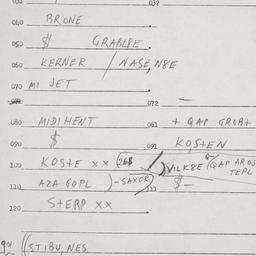 031 032
040 BRONE
050 $ GRABLSE.
060 KERNER / NASE, NSE
070 MI JET
072 —
080 MIDIHENT 081 + GAP GROBT
090 $ 091 KOSTEN
100 KOSTE XX (268 / ) VILKSE (GAP AROS
TEPL
110 AZA GOPL ) - SAXOR) 111 $ —
120 STERP XX
(STIBU, NES